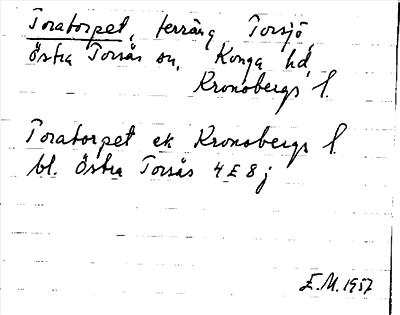 Toratorpet, terräng Torsjö,
Östra Torsås sn, Konga hd,
Kronobergs l.
Toratorpet ek Kronobergs l.
bl. Östra Torsås 4E8j
E.M. 1957